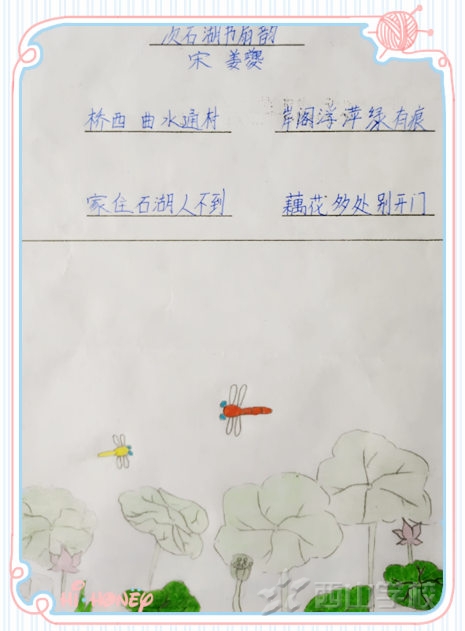 次石湖书扇韵
宋 姜夔
桥西曲水通村 岸阁浮萍绿有痕
家住石湖人不到 藕花多处别开门
Hi HONEY
西山学校